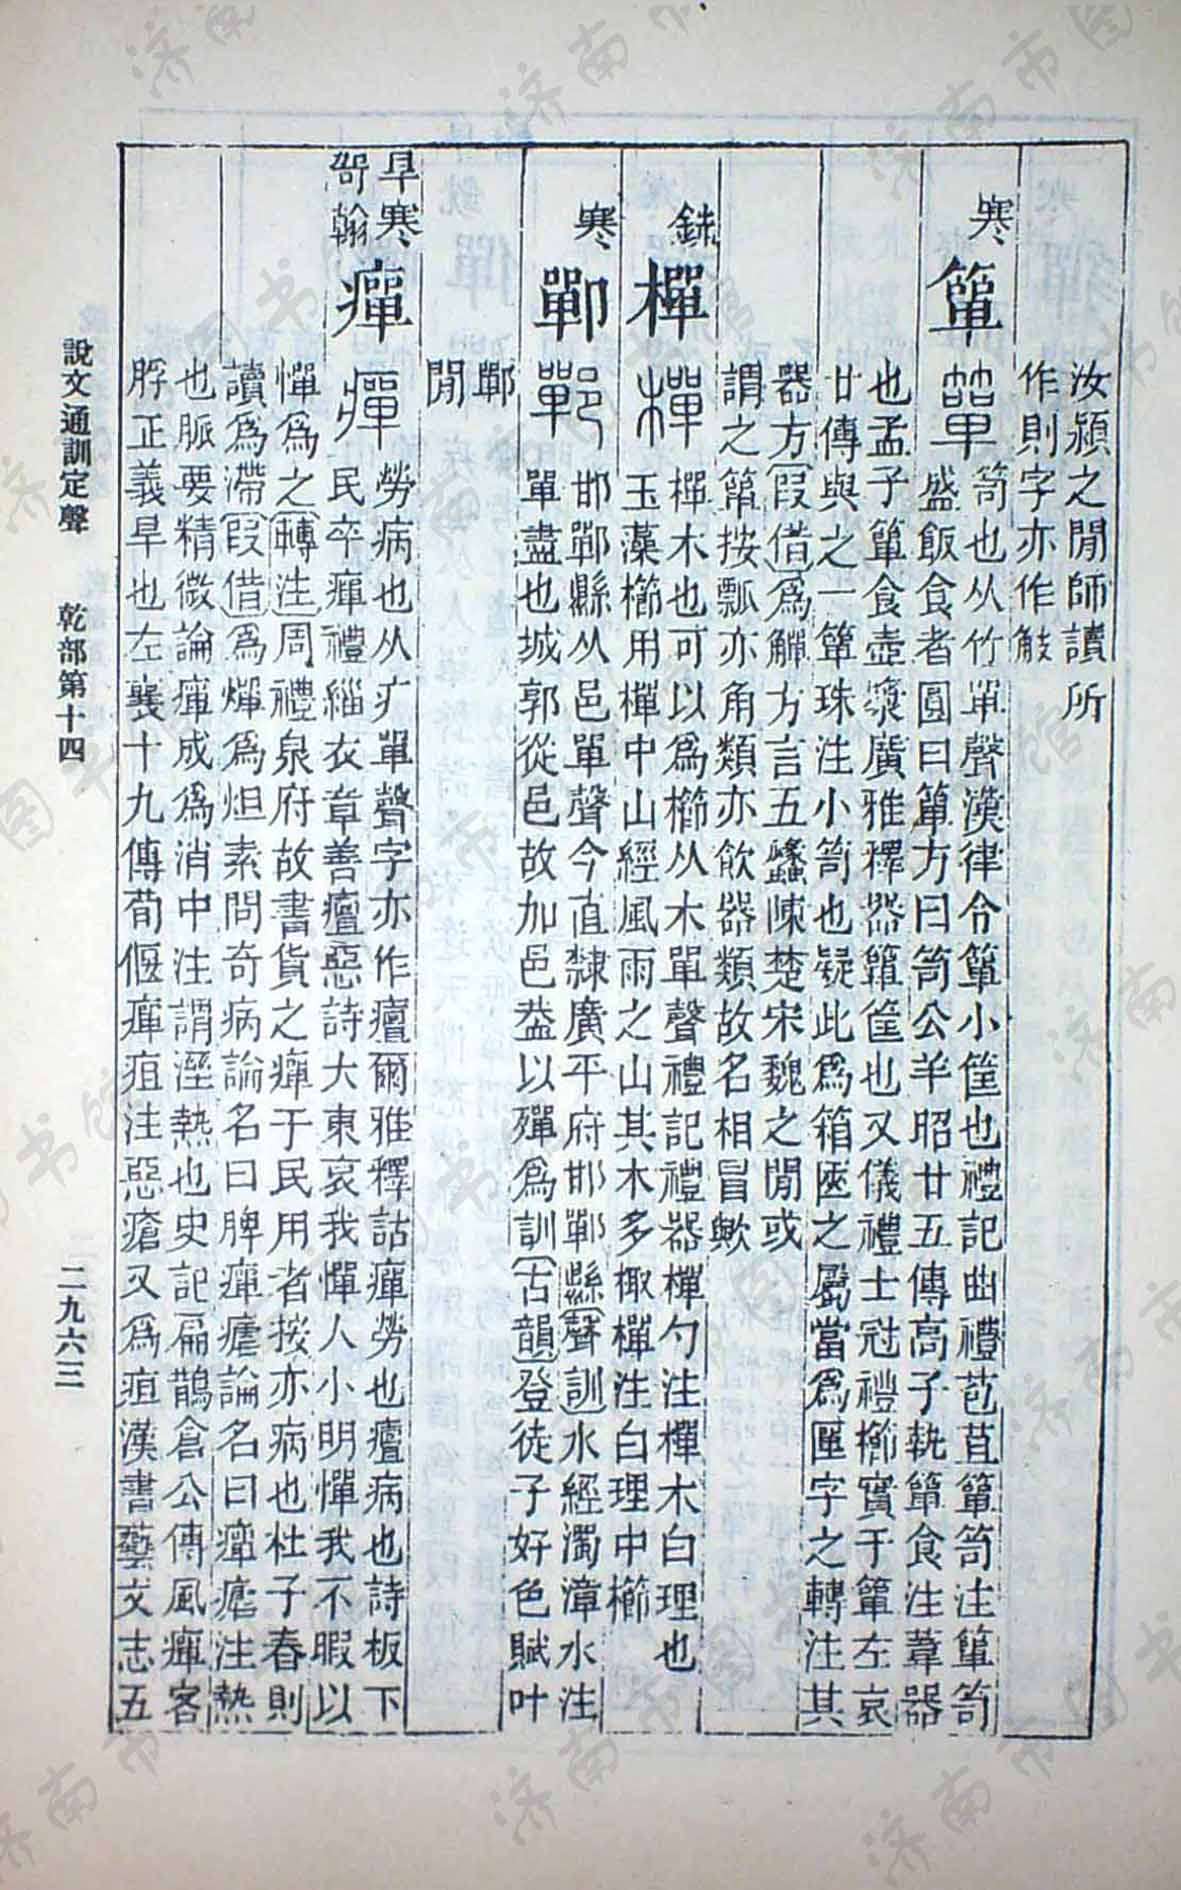 汝潁之閒師讀所
作則字亦作觙
寒
簞
笥也从竹單聲漢律令簞小筐也禮記曲禮苞苴簞笥注簞笥
盛飯食者圓曰簞方曰笥公羊昭廿五傳高子執簞食注葦器
也孟子簞食壺漿廣雅釋器簞筐也又儀禮士冠禮櫛實于簞左哀
廿傳與之一簞珠注小笥也疑此爲箱匧之屬當爲匰字之轉注其
器方〔叚借〕爲觶方言五蠡陳楚宋魏之閒或
謂之簞按瓢亦角類亦飲器類故名相冒歟
銑
樿
樿木也可以爲櫛从木單聲禮記禮器樿勺注樿木白理也
玉藻櫛用樿中山經風雨之山其木多棷樿注白理中櫛
寒
鄲
邯鄲縣从邑單聲今直隸廣平府邯鄲縣〔聲訓〕水經濁漳水注
單盡也城郭從邑故加邑葢以殫爲訓〔古韻〕登徒子好色賦叶
鄲
閒
旱寒
哿翰
癉
勞病也从疒單聲字亦作癉爾雅釋詁癉勞也癉病也詩板下
民卒癉禮緇衣章善癉惡詩大東哀我憚人小明憚我不暇以
憚爲之〔轉注〕周禮泉府故書貨之癉于民用者按亦病也杜子春則
讀爲滯〔叚借〕爲燀爲炟素問奇病論名曰脾癉瘧論名曰癉瘧注熱
也脈要精微論癉成爲消中注謂溼熱也史記扁鵲倉公傳風癉客
脬正義旱也左襄十九傳荀偃癉疽注惡瘡又爲疸漢書藝文志五
說文通訓定聲 乾部第十四 二九六三
济南市图书馆